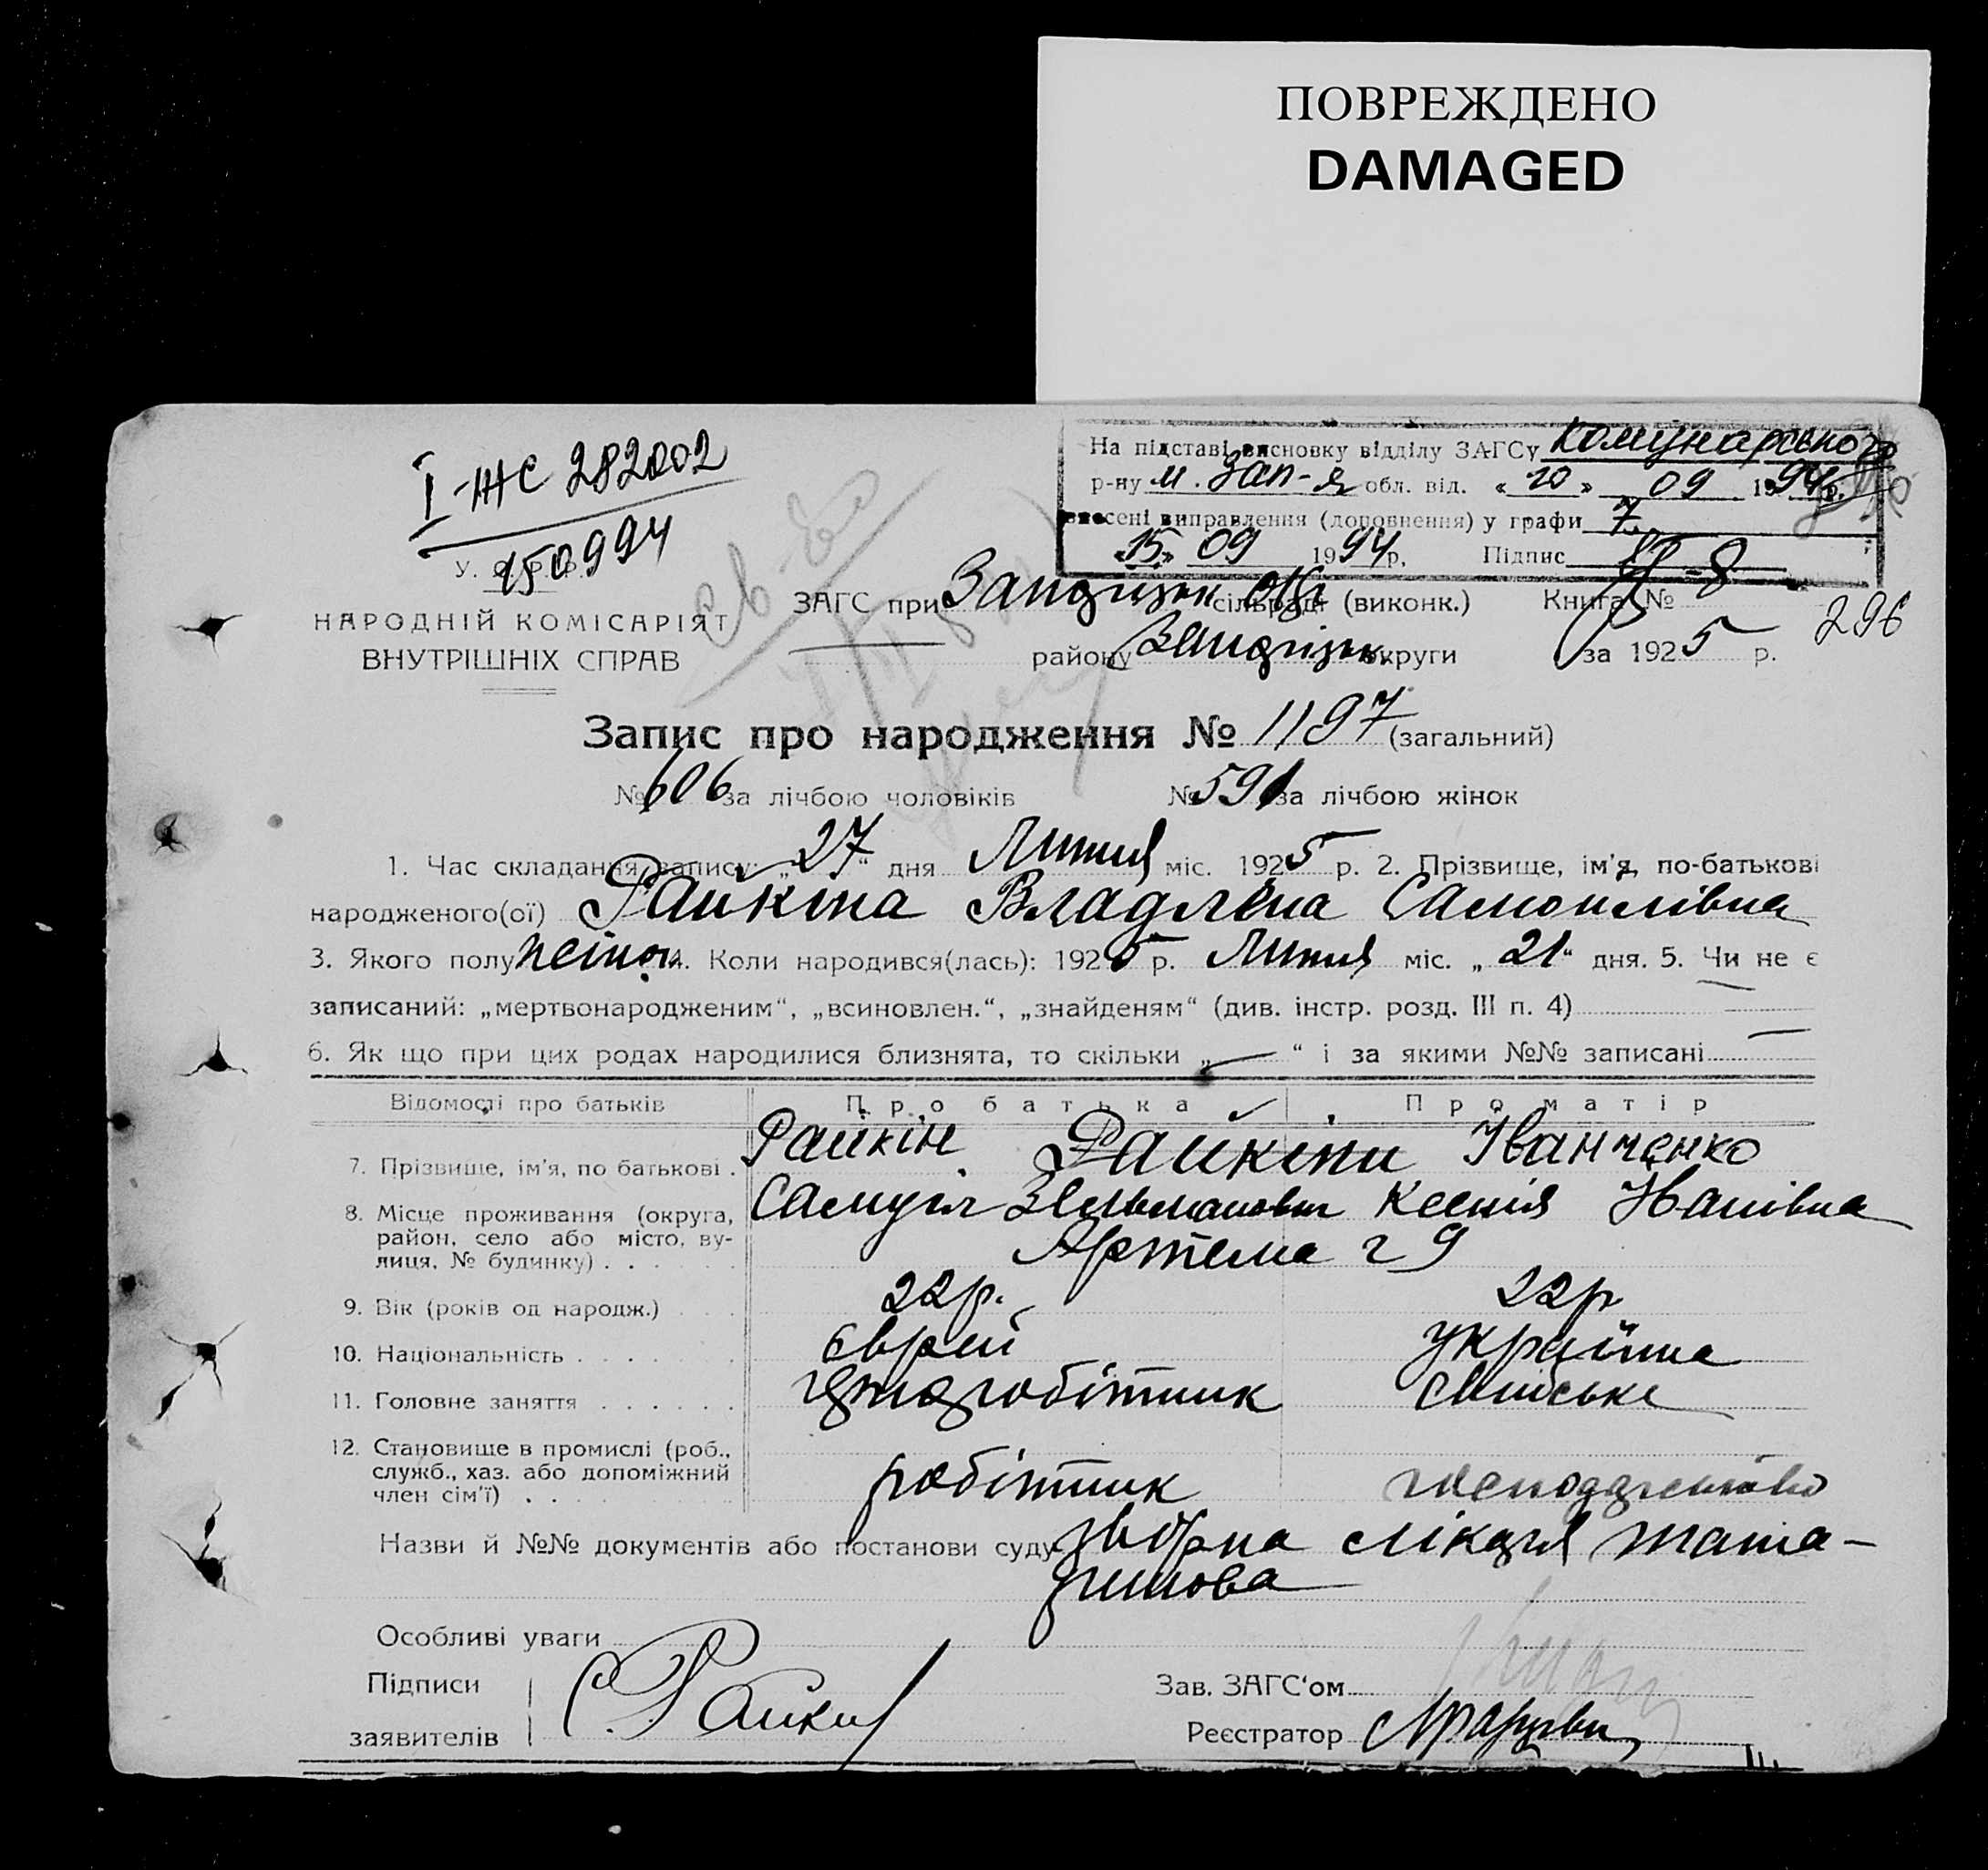 ПОВРЕЖДЕНО
DAMAGED
На підставі висновку відділу ЗАГСу Комунарського
р-ну м. Зап-я обл. від. «10» 09 1994р.
внесені виправлення (доповнення) у графи 7
«15» 09 1994р. Підпис
I-ЖС 282002
150994
У. С. Р. Р.
НАРОДНІЙ КОМІСАРІЯТ
ВНУТРІШНІХ СПРАВ
ЗАГС при Запорізьк сільраді (виконк.) Книга №
296
району Запорізьк. округи за 1925 р.
Запис про народження № 1197 (загальний)
№ 606 за лічбою чоловіків № 591 за лічбою жінок
1. Час складання запису: „27“ дня Липня міс. 1925 р. 2. Прізвище, ім'я, по-батькові
народженого(ої) Райкіна Владлена Самоилівна
3. Якого полу жіноч. 4. Коли народився(лась): 1925 р. Липня міс. „21“ дня. 5. Чи не є
записаний: „мертвонародженим“, „всиновлен.“, „знайденям“ (див. інстр. розд. III п. 4)
6. Як що при цих родах народилися близнята, то скільки „—“ і за якими №№ записані —
Відомості про батьків Про батька Про матір
7. Прізвище, ім'я, по батькові . Райкін Райкіни Іванченко
Самуїл Зельманович Ксенія Іванівна
8. Місце проживання (округа,
район, село або місто, ву-
лиця, № будинку) . . . Артема 29
9. Вік (років од народж.) . . . 22р. 22р
10. Національність . . . . . . Єврей Українка
11. Головне заняття . . . . . . сільське
12. Становище в промислі (роб.,
служб., хаз. або допоміжний
член сім'ї) . . робітник господарство
Назви й №№ документів або постанови суду лікаря
Особливі уваги
Підписи
заявителів С. Райкин
Зав. ЗАГС'ом
Реєстратор